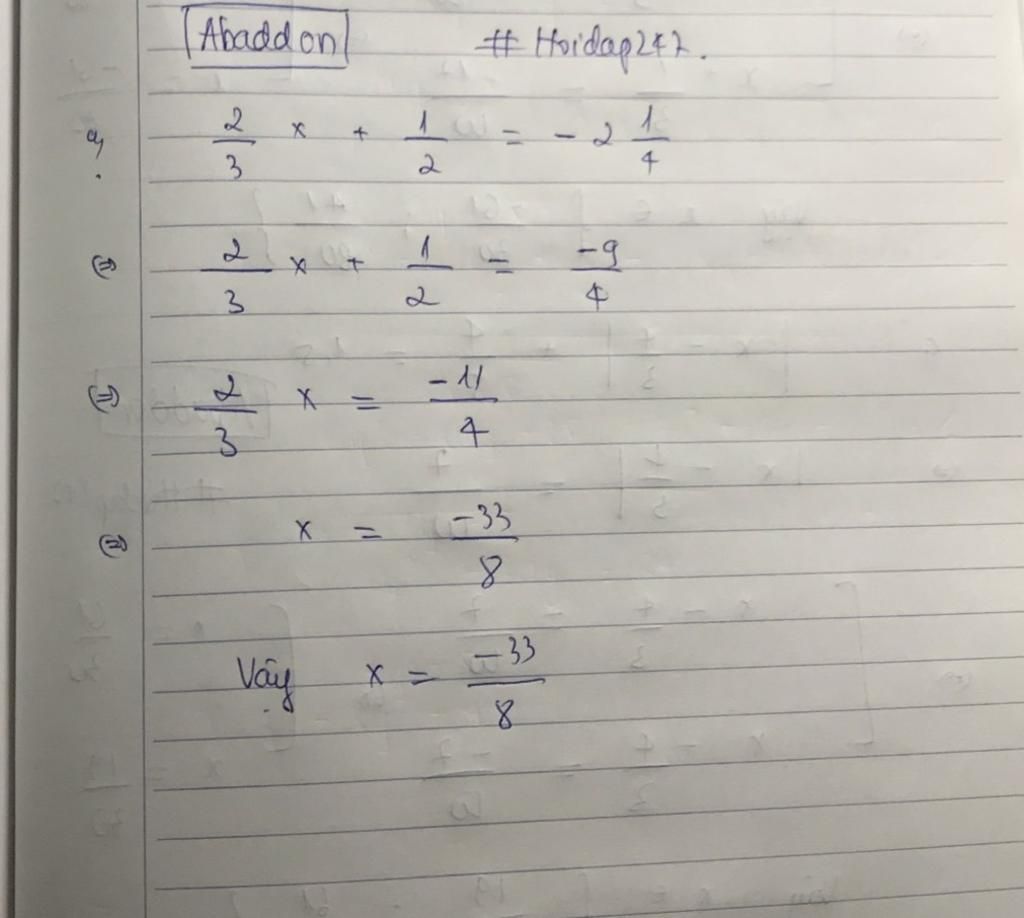 Abaddon # Hoidap247.
a, 2/3 x + 1/2 = - 2 1/4
⇔ 2/3 x + 1/2 = -9/4
⇔ 2/3 x = -11/4
⇔ x = -33/8
Vậy x = -33/8